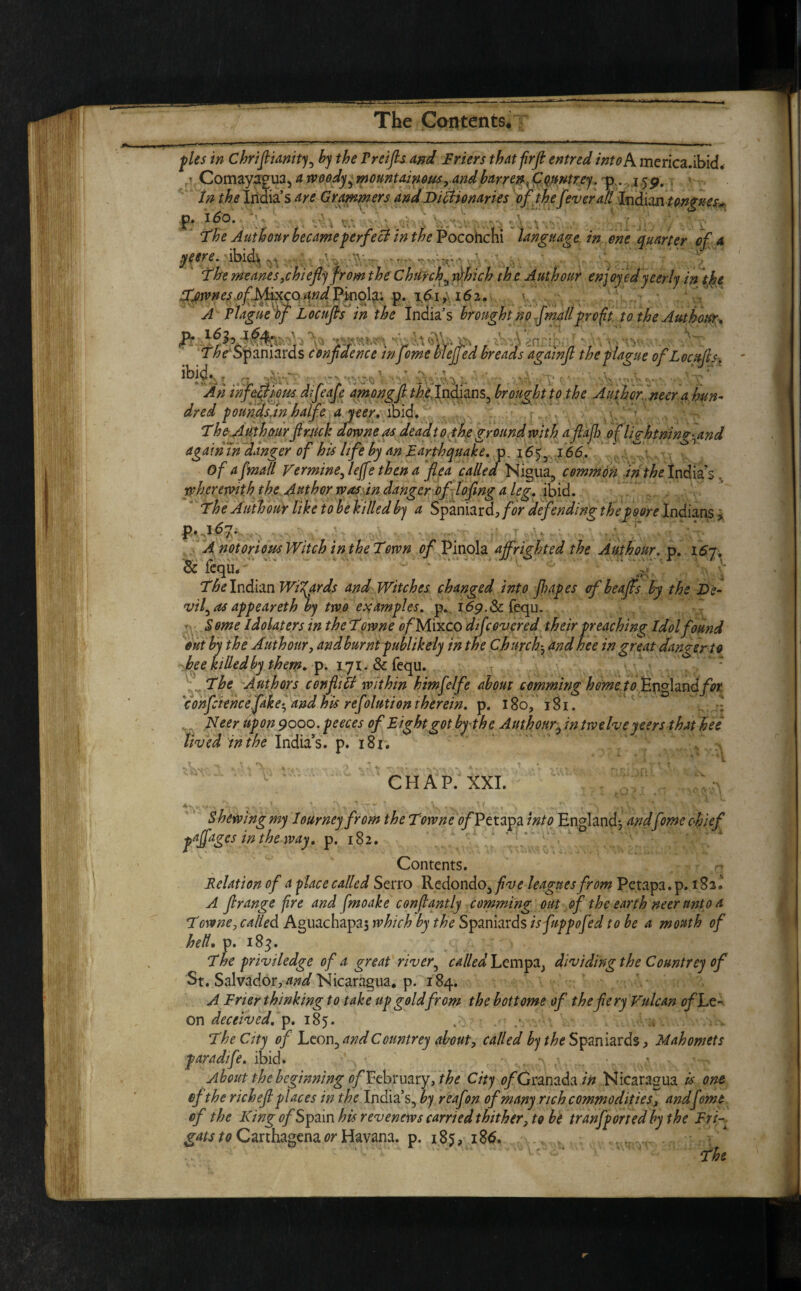 The Contents.
ples in Chriſtianity, by the Preiſts and Friers that firſt entred into America.ibid.
Comayagua, a woody, mountainous, and barren Countrey. p. 159.
In the India's are Grammers and Dictionaries of the ſeverall Indian tongues.
p. 160.
The Authour became perfect in the Poconchi language in one quarter of a
yeere. ibid.
The meanes, chiefly from the Church, which the Authour enjoyed yeerly in the
Townes of Mixco and Pinola. p. 161, 162.
A Plague of Locuſts in the India's brought no ſmall profit to the Authour.
p. 163, 164.
The Spaniards confidence in ſome bleſſed breads againſt the plague of Locuſts.
ibid.
An infectious diſeaſe amongſt the Indians, brought to the Author neer a hun-
dred pounds in halfe a yeer. ibid.
The Authour ſtruck downe as dead to the ground with a flaſh of lightning; and
again in danger of his life by an Earthquake. p. 165, 166.
Of a ſmall Vermine, leſſe then a flea called Nigua, common in the India's,
wherewith the Author was in danger of loſing a leg. ibid.
The Authour like to be killed by a Spaniard, for defending the poore Indians,
p. 167.
A notorious Witch in the Town of Pinola affrighted the Authour. p. 167.
& ſequ.
The Indian Wizards and Witches changed into ſhapes of beaſts by the De-
vil, as appeareth by two examples. p. 169. & ſequ.
Some Idolaters in the Towne of Mixco diſcovered their preaching Idol found
out by the Authour, and burnt publikely in the Church; and hee in great danger to
bee killed by them. p. 171. & ſequ.
The Authors conflict within himſelfe about comming home to England for
conſcience ſake; and his reſolution therein. p. 180, 181.
Neer upon 9000. peeces of Eight got by the Authour, in twelve yeers that hee
lived in the India's. p. 181.
CHAP. XXI.
Shewing my Iourney from the Towne of Petapa into England; and ſome chief
paſſages in the way. p. 182.
Contents.
Relation of a place called Serro Redondo, five leagues from Petapa. p. 182.
A ſtrange fire and ſmoake conſtantly comming out of the earth neer unto a
Towne, called Aguachapa; which by the Spaniards is ſuppoſed to be a mouth of
hell. p. 183.
The priviledge of a great river, called Lempa, dividing the Countrey of
St. Salvador, and Nicaragua. p. 184.
A Frier thinking to take up gold from the bottome of the fiery Vulcan of Le-
on deceived. p. 185.
The City of Leon, and Countrey about, called by the Spaniards, Mahomets
paradiſe. ibid.
About the beginning of February, the City of Granada in Nicaragua is one
of the richeſt places in the India's, by reaſon of many rich commodities, and ſome
of the King of Spain his revenews carried thither, to be tranſported by the Fri-
gats to Carthagena or Havana. p. 185, 186.
The